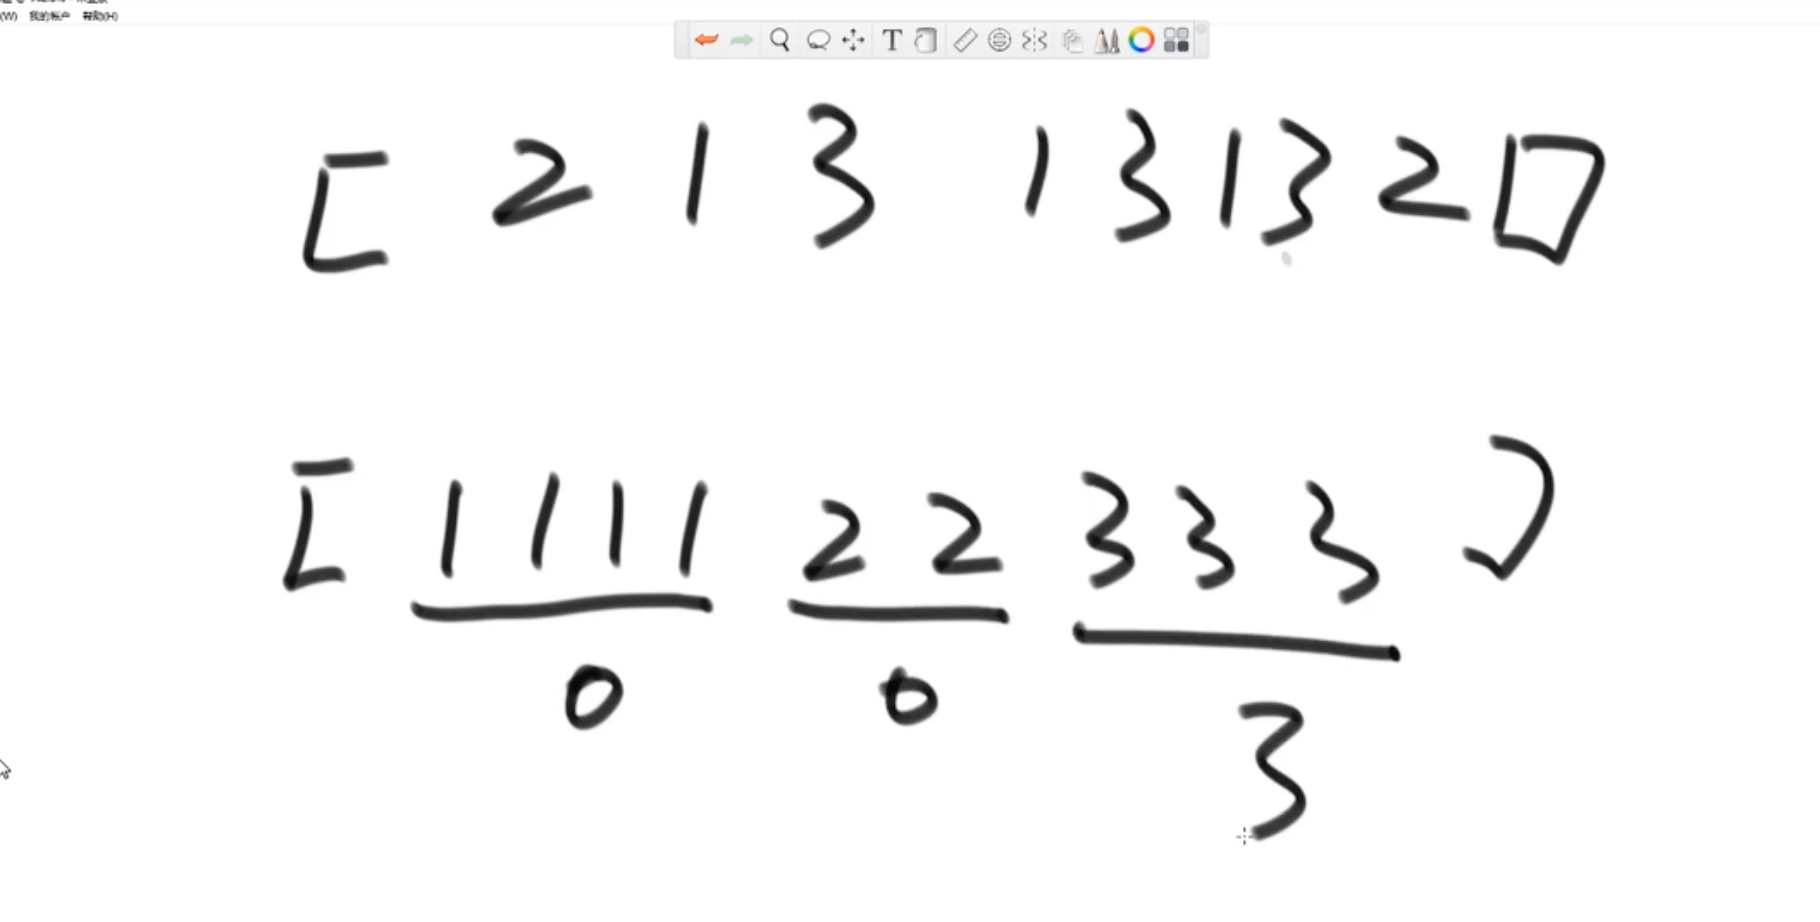 (W) 我的帐户 帮助(H)
T
[ 2 1 3 1 3 1 3 2 1 ]
[ 1 1 1 1 2 2 3 3 3 ]
0 0
3